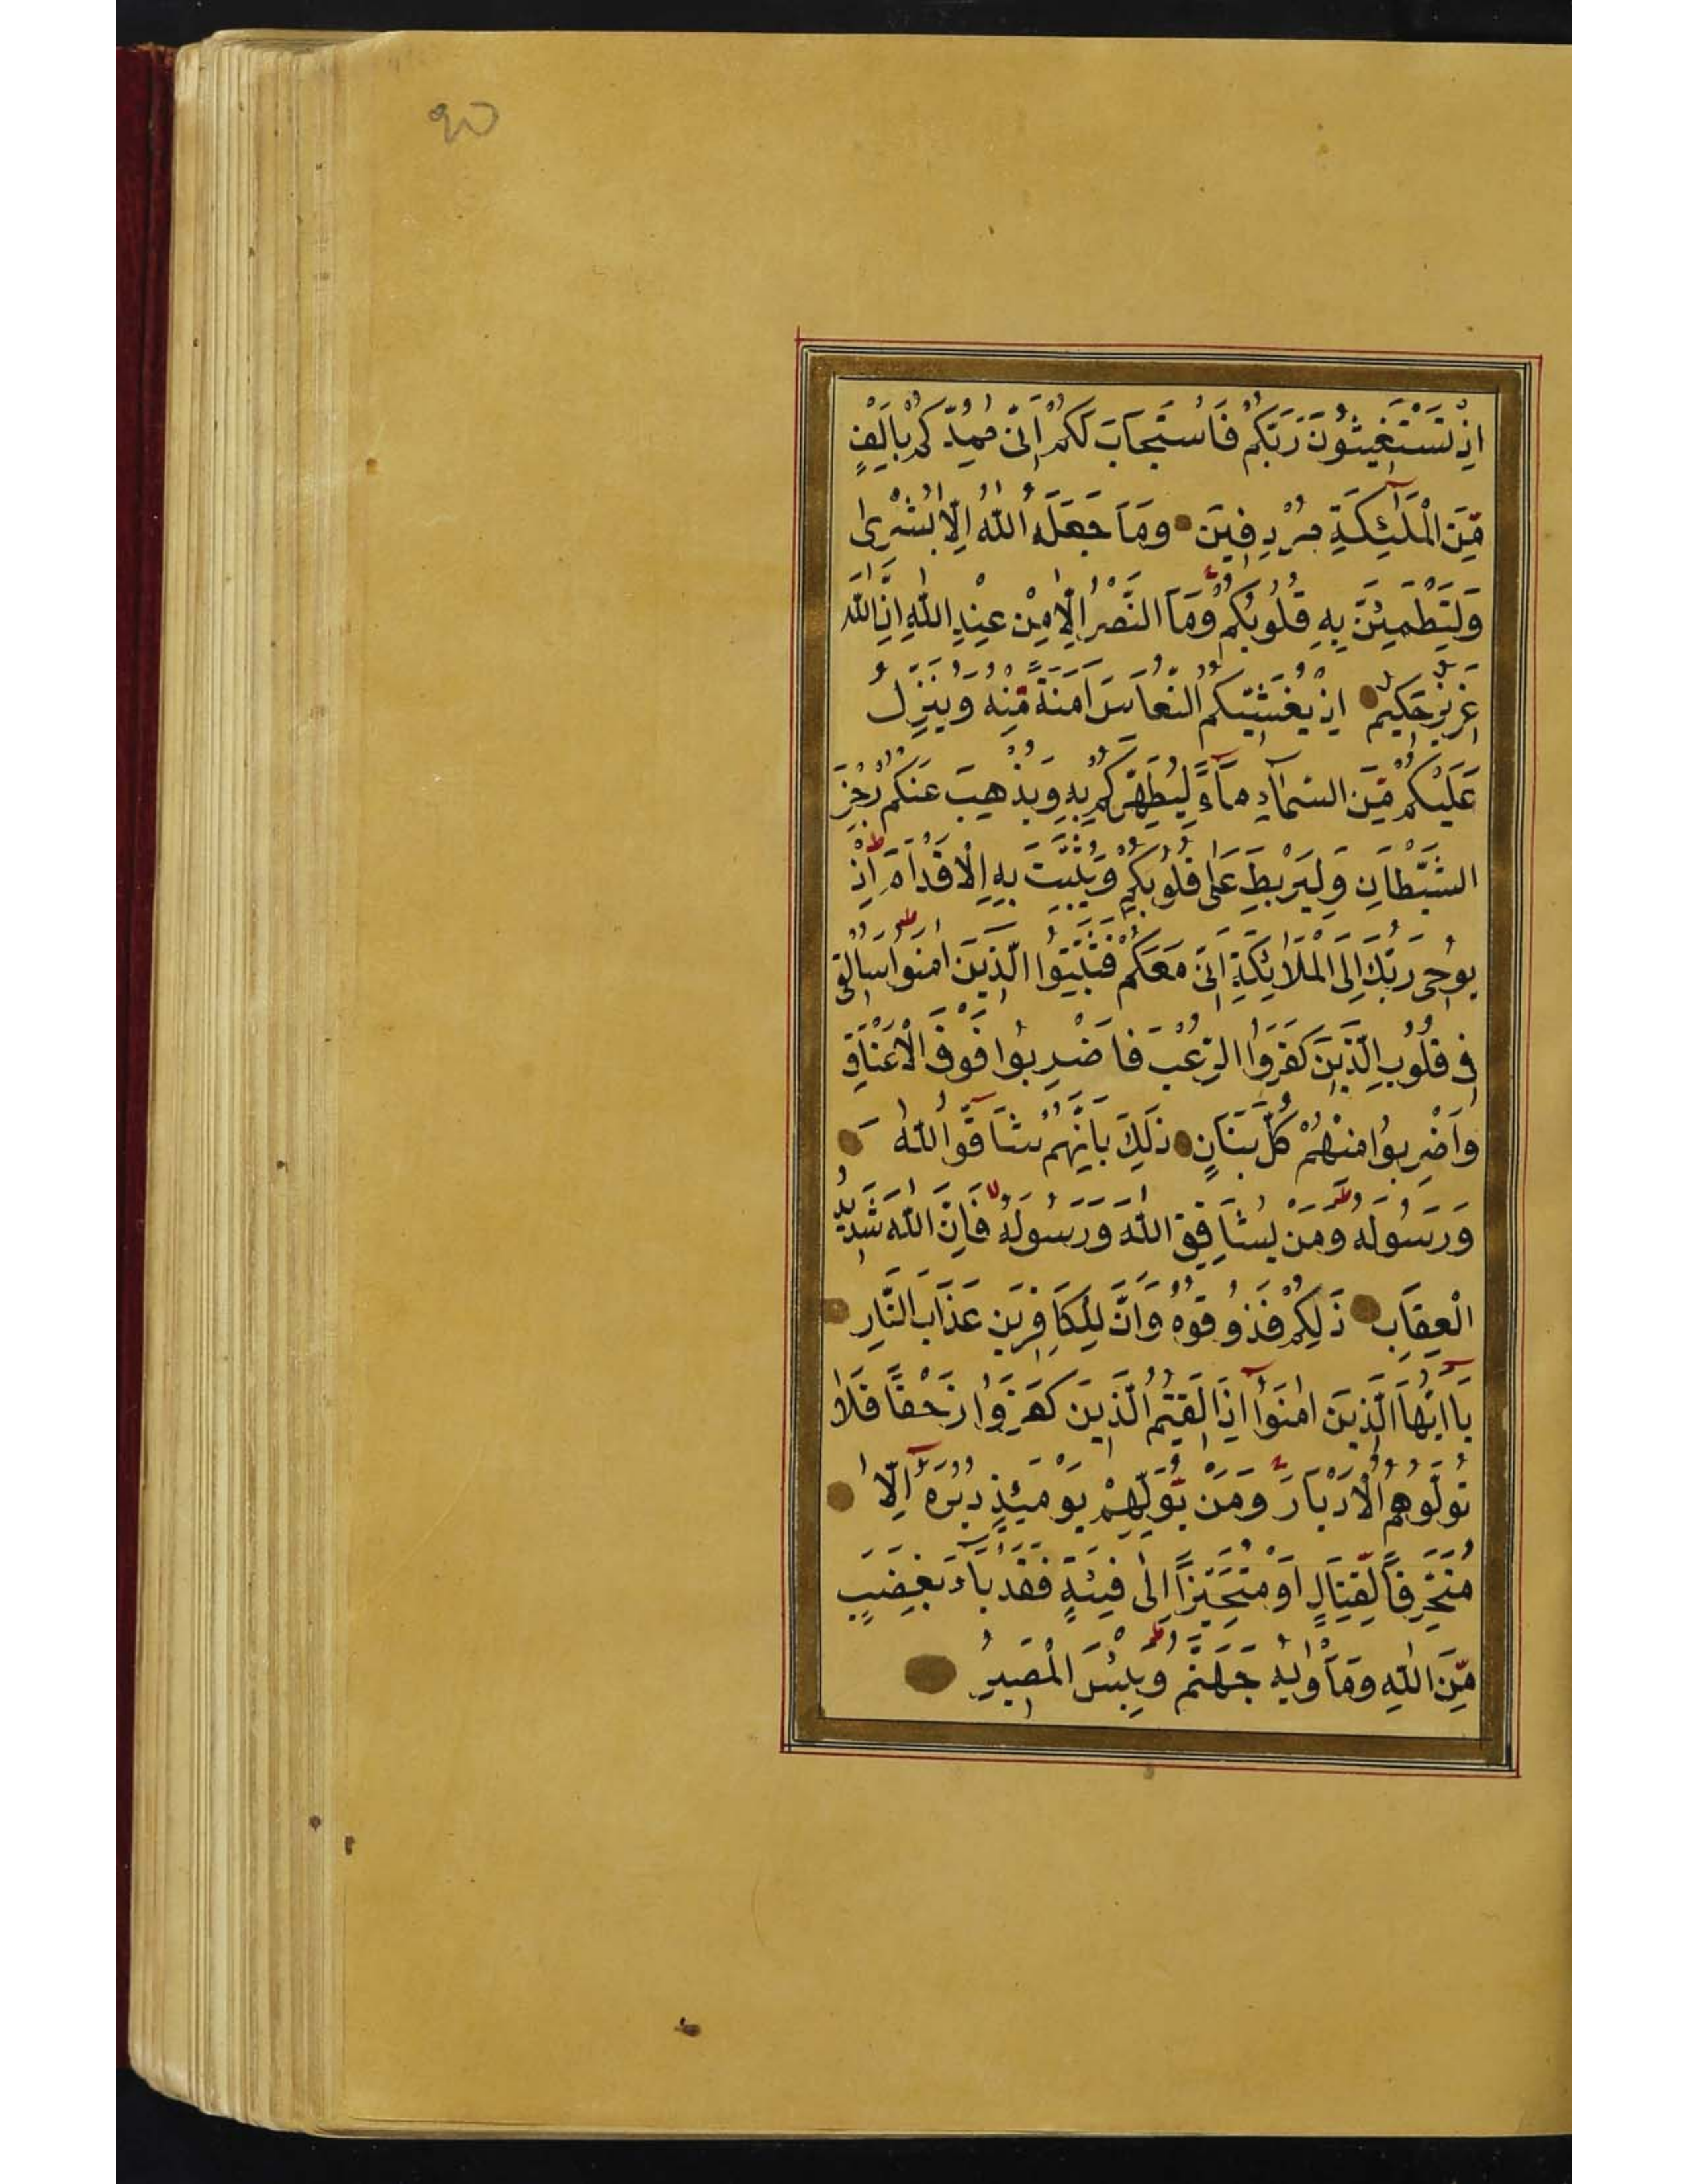 ٩٥
اِذْ تَسْتَغِيثُونَ رَبَّكُمْ فَاسْتَجَابَ لَكُمْ اَنّى مُمِدُّكُمْ بِاَلْفٍ
مِّنَ الْمَلٰٓئِكَةِ مُرْدِفِينَ وَمَا جَعَلَهُ اللّٰهُ اِلَّا بُشْرىٰ
وَلِتَطْمَئِنَّ بِهِ قُلُوبُكُمْ وَمَا النَّصْرُ اِلَّا مِنْ عِنْدِ اللّٰهِ اِنَّ اللّٰهَ
عَزِيزٌ حَكِيمٌ اِذْ يُغَشّيكُمُ النُّعَاسَ اَمَنَةً مِّنْهُ وَيُنَزِّلُ
عَلَيْكُمْ مِّنَ السَّمَآءِ مَآءً لِيُطَهِّرَكُمْ بِهِ وَيُذْهِبَ عَنْكُمْ رِجْزَ
الشَّيْطَانِ وَلِيَرْبِطَ عَلٰى قُلُوبِكُمْ وَيُثَبِّتَ بِهِ الْاَقْدَامَ اِذْ
يُوحِى رَبُّكَ اِلَى الْمَلَائِكَةِ اَنّى مَعَكُمْ فَثَبِّتُوا الَّذِينَ اٰمَنُوا سَاُلْقِى
فِى قُلُوبِ الَّذِينَ كَفَرُوا الرُّعْبَ فَاضْرِبُوا فَوْقَ الْاَعْنَاقِ
وَاضْرِبُوا مِنْهُمْ كُلَّ بَنَانٍ ذٰلِكَ بِاَنَّهُمْ شَآقُّوا اللّٰهَ
وَرَسُولَهُ وَمَنْ يُشَاقِقِ اللّٰهَ وَرَسُولَهُ فَاِنَّ اللّٰهَ شَدِيدُ
الْعِقَابِ ذٰلِكُمْ فَذُوقُوهُ وَاَنَّ لِلْكَافِرِينَ عَذَابَ النَّارِ
يَآ اَيُّهَا الَّذِينَ اٰمَنُوٓا اِذَا لَقِيتُمُ الَّذِينَ كَفَرُوا زَحْفًا فَلَا
تُوَلُّوهُمُ الْاَدْبَارَ وَمَنْ يُّوَلِّهِمْ يَوْمَئِذٍ دُبُرَهُٓ اِلَّا
مُتَحَرِّفًا لِّقِتَالٍ اَوْ مُتَحَيِّزًا اِلٰى فِئَةٍ فَقَدْ بَآءَ بِغَضَبٍ
مِّنَ اللّٰهِ وَمَاْوٰيهُ جَهَنَّمُ وَبِئْسَ الْمَصِيرُ